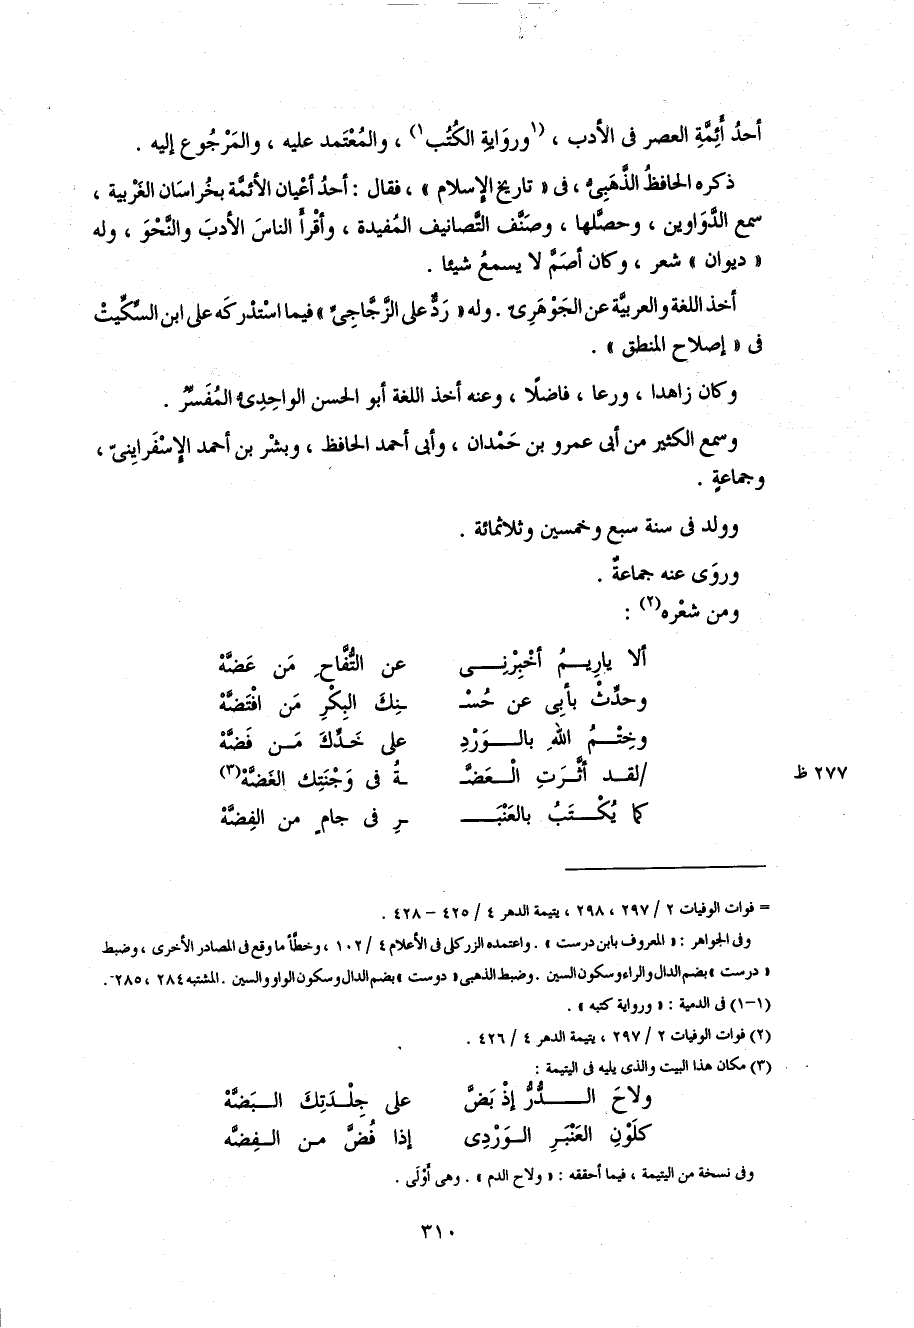 أحدُ أَئِمَّةِ العصر فى الأدب ، (١ورِوَايةِ الكُتُب١) ، والمُعْتَمد عليه ، والمَرْجُوع إليه .
ذكره الحافظُ الذَّهَبِىُّ ، فى « تاريخ الإسلام » ، فقال : أحدُ أعْيان الأئمَّة بخُراسان الغَرْبية ،
سمع الدَّوَاوين ، وحصَّلها ، وصنَّف التَّصانيف المُفيدة ، وأقْرأَ الناسَ الأدبَ والنَّحْوَ ، وله
« ديوان » شعر ، وكان أصَمَّ لا يسمعُ شيئا .
أخذ اللغة والعربيَّة عن الجَوْهَرِىّ . وله « رَدٌّ على الزَّجَّاجىِّ » فيما اسْتَدْركه على ابن السِّكِّيتْ
فى « إصلاح المنطق » .
وكان زاهدا ، ورعا ، فاضلًا ، وعنه أخذ اللغة أبو الحسن الواحِدِىُّ المُفَسِّرُ .
وسمع الكثير من أبى عمرو بن حَمْدان ، وأبى أحمد الحافظ ، وبِشْر بن أحمد الإِسْفَراينىّ ،
وجماعةٍ .
وولد فى سنة سبع وخمسين وثلاثمائة .
وروَى عنه جماعةٌ .
ومن شعْره(٢) :
ألا يارِيـــمُ أخْبِرْنِــى عن التُّفَّاحِ مَن عَضَّهْ
وحدِّثْ بأبِى عن حُسْـ ـنِكَ البِكْرِ مَن افْتَضَّهْ
وخِتْــمُ اللهِ بالــوَرْدِ على خَدِّكَ مَــن فَضَّهْ
/لقــد أثَّــرَتِ الْــعَضَّــ ــةُ فى وَجْنَتِك الغَضَّهْ(٣)
٢٧٧ ظ
كما يُكْــتَبُ بالعَنْبَــ ــرِ فى جامٍ من الفِضَّهْ
= فوات الوفيات ٢ / ٢٩٧ ، ٢٩٨ ، يتيمة الدهر ٤ / ٤٢٥ – ٤٢٨ .
وفى الجواهر : « المعروف بابن درست » . واعتمده الزركلى فى الأعلام ٤ / ١٠٢ ، وخطَّأ ما وقع فى المصادر الأخرى ، وضبط
« درست » بضم الدال والراء وسكون السين . وضبط الذهبى « دوست » بضم الدال وسكون الواو والسين . المشتبه ٢٨٤ ، ٢٨٥ .
(١–١) فى الدمية : « ورواية كتبه » .
(٢) فوات الوفيات ٢ / ٢٩٧ ، يتيمة الدهر ٤ / ٤٢٦ .
(٣) مكان هذا البيت والذى يليه فى اليتيمة :
ولاحَ الــــدُّرُّ إذْ بَضَّ على جِلْــدَتِكَ الــبَضَّهْ
كلَوْنِ العَنْبَرِ الــوَرْدِى إذا فُضَّ مــن الــفِضَّه
وفى نسخة من اليتيمة ، فيما أحققه : « ولاح الدم » . وهى أَوْلَى .
٣١٠